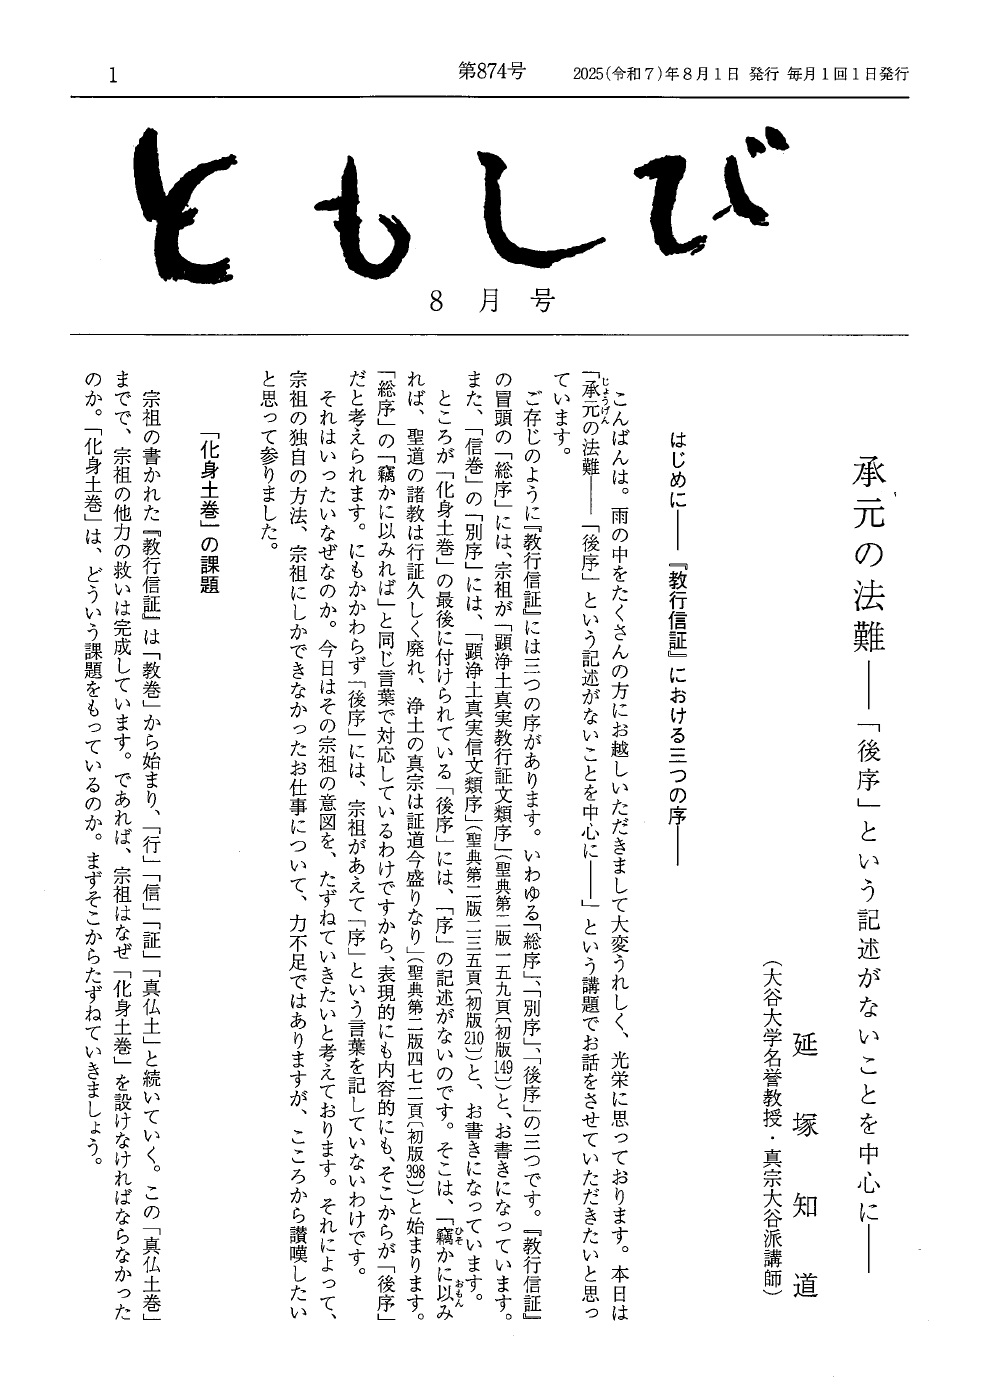 1
第874号
2025(令和7)年8月1日 発行 毎月1回1日発行
ともしび
8月号
承元の法難――「後序」という記述がないことを中心に――
延塚知道
(大谷大学名誉教授・真宗大谷派講師)
はじめに――『教行信証』における三つの序――
こんばんは。雨の中をたくさんの方にお越しいただきまして大変うれしく、光栄に思っております。本日は
「承元の法難――「後序」という記述がないことを中心に――」という講題でお話をさせていただきたいと思っ
じょうげん
ています。
ご存じのように『教行信証』には三つの序があります。いわゆる「総序」、「別序」、「後序」の三つです。『教行信証』
の冒頭の「総序」には、宗祖が「顕浄土真実教行証文類序」(聖典第二版一五九頁〔初版149〕)と、お書きになっています。
また、「信巻」の「別序」には、「顕浄土真実信文類序」(聖典第二版二三五頁〔初版210〕)と、お書きになっています。
ところが「化身土巻」の最後に付けられている「後序」には、「序」の記述がないのです。そこは、「竊かに以み
ひそ
おもん
れば、聖道の諸教は行証久しく廃れ、浄土の真宗は証道今盛りなり」(聖典第二版四七二頁〔初版398〕)と始まります。
「総序」の「竊かに以みれば」と同じ言葉で対応しているわけですから、表現的にも内容的にも、そこからが「後序」
だと考えられます。にもかかわらず「後序」には、宗祖があえて「序」という言葉を記していないわけです。
それはいったいなぜなのか。今日はその宗祖の意図を、たずねていきたいと考えております。それによって、
宗祖の独自の方法、宗祖にしかできなかったお仕事について、力不足ではありますが、こころから讃嘆したい
と思って参りました。
「化身土巻」の課題
宗祖の書かれた『教行信証』は「教巻」から始まり、「行」「信」「証」「真仏土」と続いていく。この「真仏土巻」
までで、宗祖の他力の救いは完成しています。であれば、宗祖はなぜ「化身土巻」を設けなければならなかった
のか。「化身土巻」は、どういう課題をもっているのか。まずそこからたずねていきましょう。